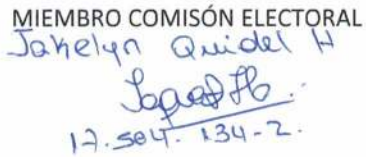 MIEMBRO COMISÓN ELECTORAL
Jakelyn Quidel H
17.504.134-2.